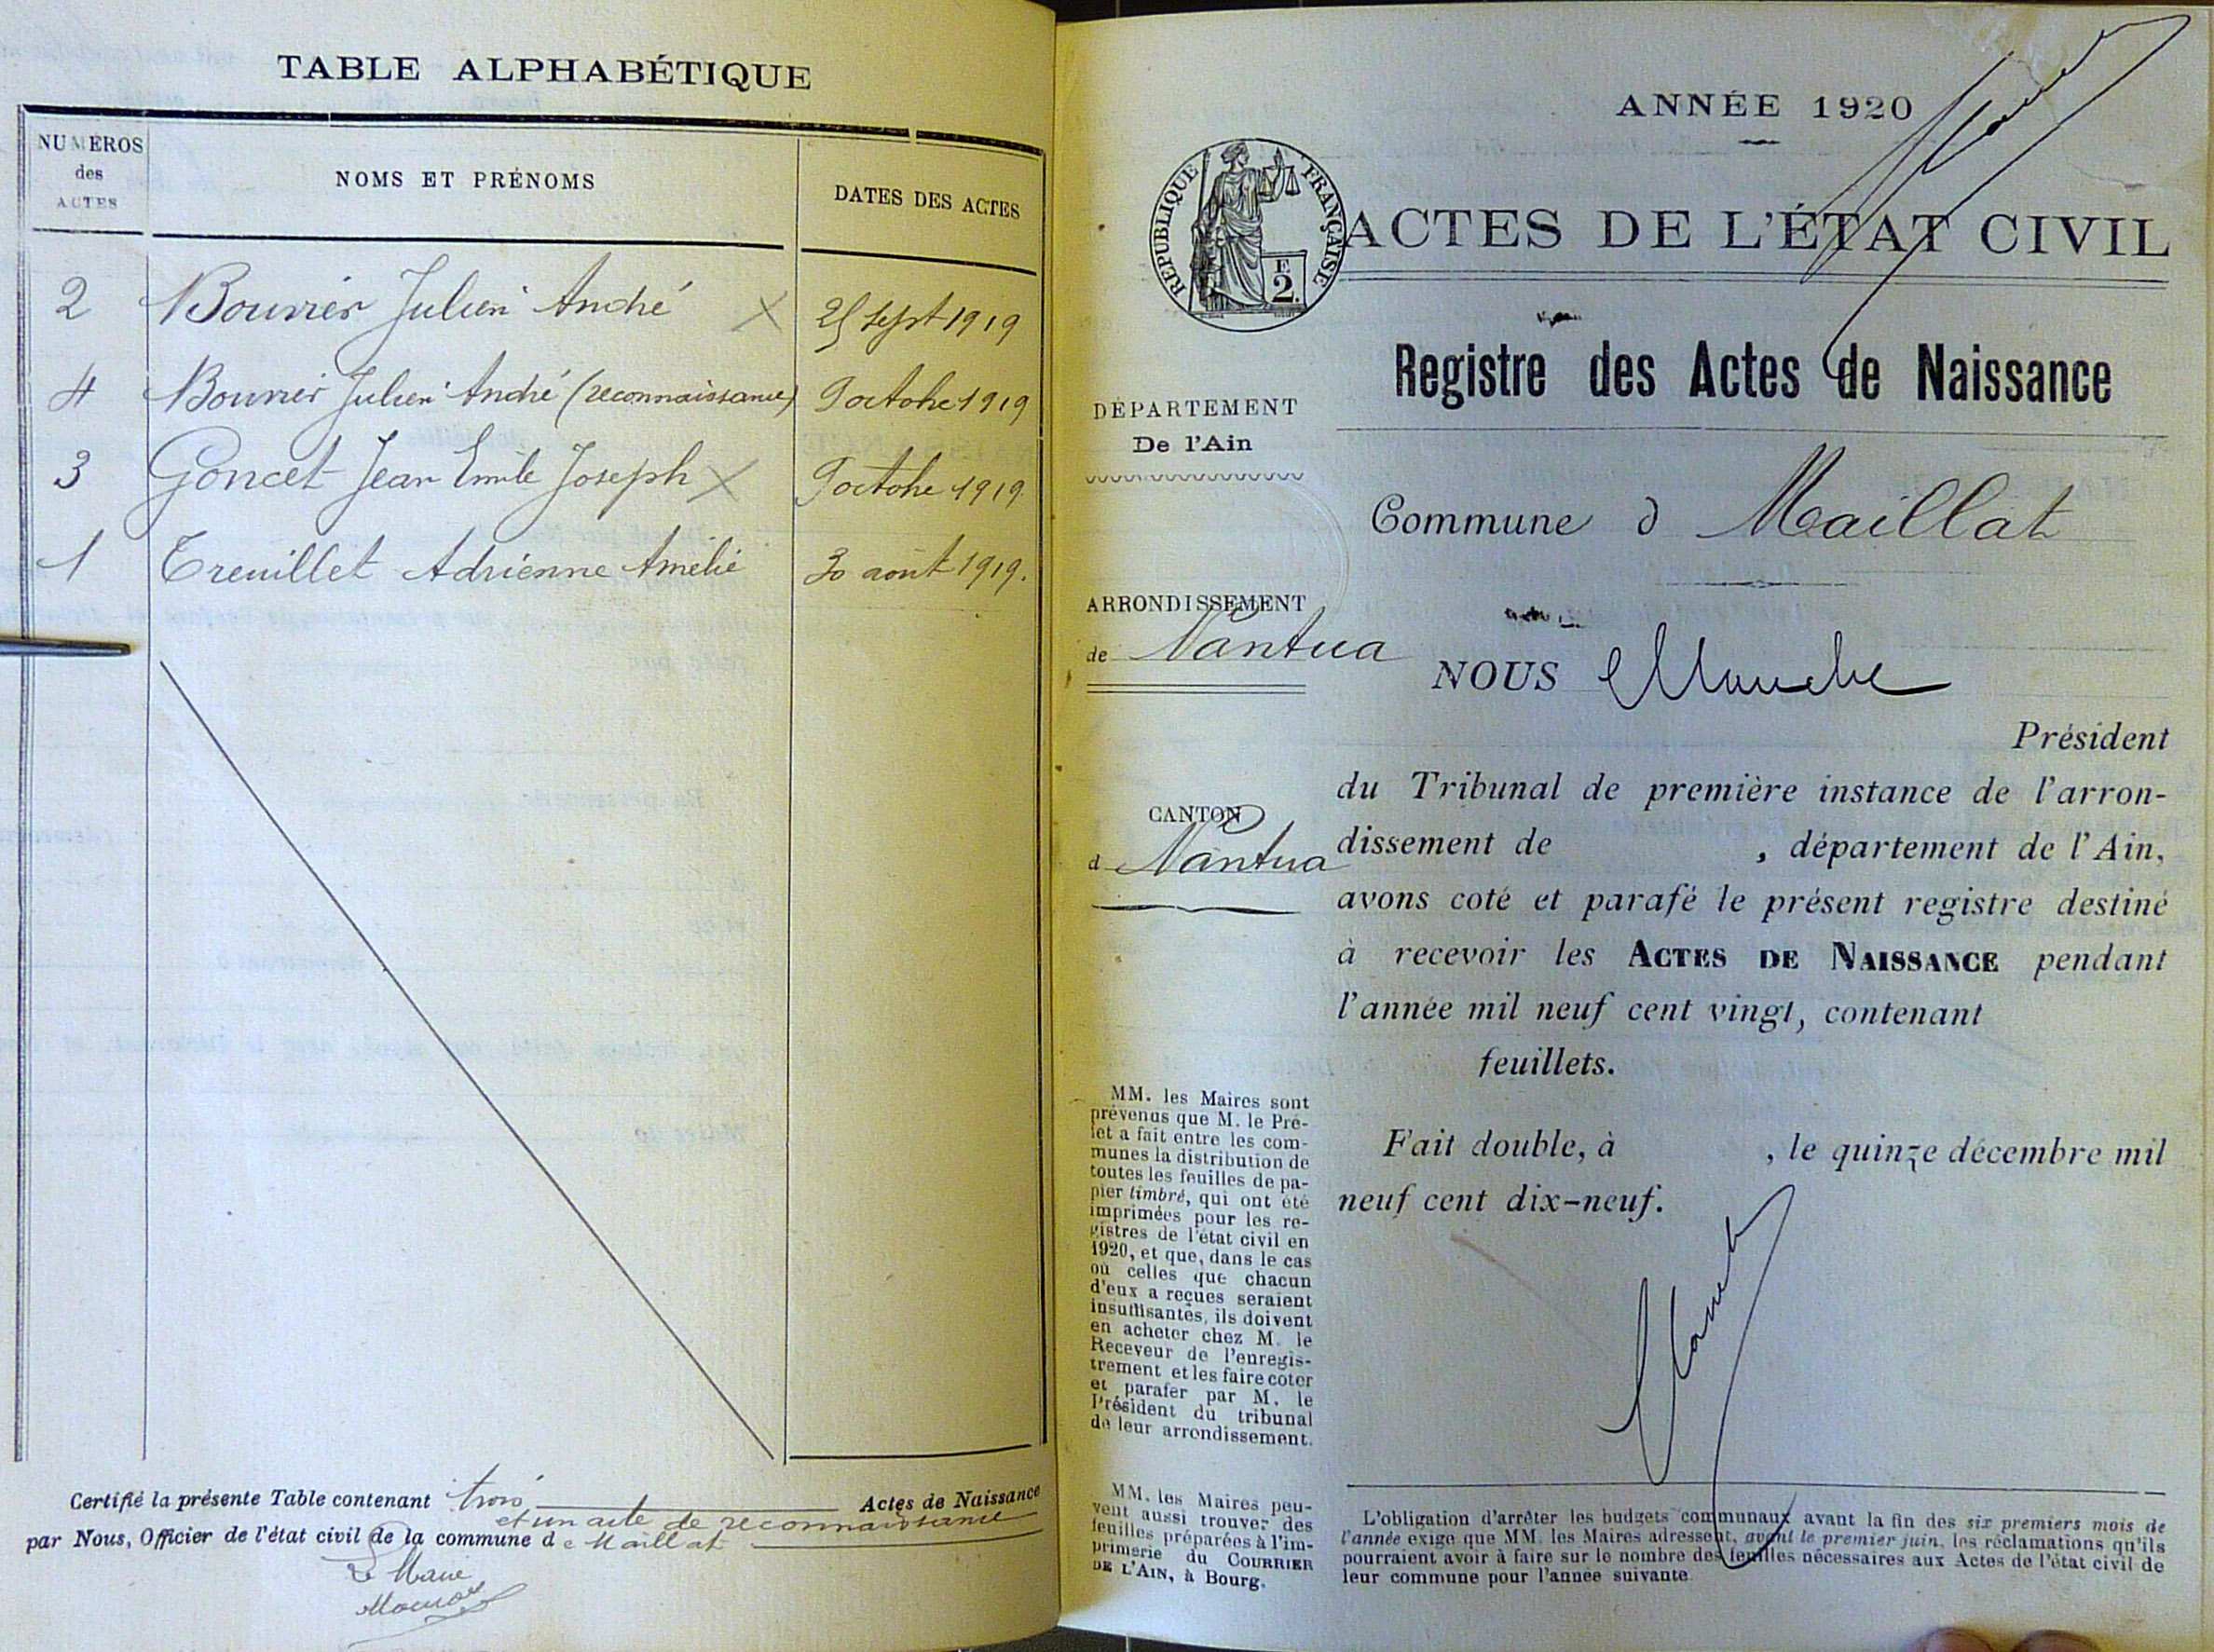 TABLE ALPHABÉTIQUE
NUMÉROS des ACTES
NOMS ET PRÉNOMS
DATES DES ACTES
2 Bourrier Julien André 25 sept 1919
4 Bourrier Julien André (reconnaissance) 9 octobre 1919
3 Goncet Jean Emile Joseph 9 octobre 1919
1 Treuillet Adrienne Amelie 30 août 1919.
Certifié la présente Table contenant trois Actes de Naissance
et un acte de reconnaissance
par Nous, Officier de l'état civil de la commune de Maillat
Le Maire
ANNÉE 1920
RÉPUBLIQUE FRANÇAISE
F
2.
ACTES DE L'ÉTAT CIVIL
Registre des Actes de Naissance
DÉPARTEMENT
De l'Ain
Commune d Maillat
ARRONDISSEMENT
de Nantua
NOUS
Président
du Tribunal de première instance de l'arron-
CANTON
d Nantua
dissement de , département de l'Ain,
avons coté et parafé le présent registre destiné
à recevoir les ACTES DE NAISSANCE pendant
l'année mil neuf cent vingt, contenant
feuillets.
Fait double, à , le quinze décembre mil
neuf cent dix-neuf.
MM. les Maires sont
prévenus que M. le Pré-
fet a fait entre les com-
munes la distribution de
toutes les feuilles de pa-
pier timbré, qui ont été
imprimées pour les re-
gistres de l'état civil en
1920, et que, dans le cas
où celles que chacun
d'eux a reçues seraient
insuffisantes, ils doivent
en acheter chez M. le
Receveur de l'enregis-
trement et les faire coter
et parafer par M. le
Président du tribunal
de leur arrondissement.
MM. les Maires peu-
vent aussi trouver des
feuilles préparées à l'im-
primerie du COURRIER
DE L'AIN, à Bourg.
L'obligation d'arrêter les budgets communaux avant la fin des six premiers mois de
l'année exige que MM. les Maires adressent, avant le premier juin, les réclamations qu'ils
pourraient avoir à faire sur le nombre des feuilles nécessaires aux Actes de l'état civil de
leur commune pour l'année suivante.